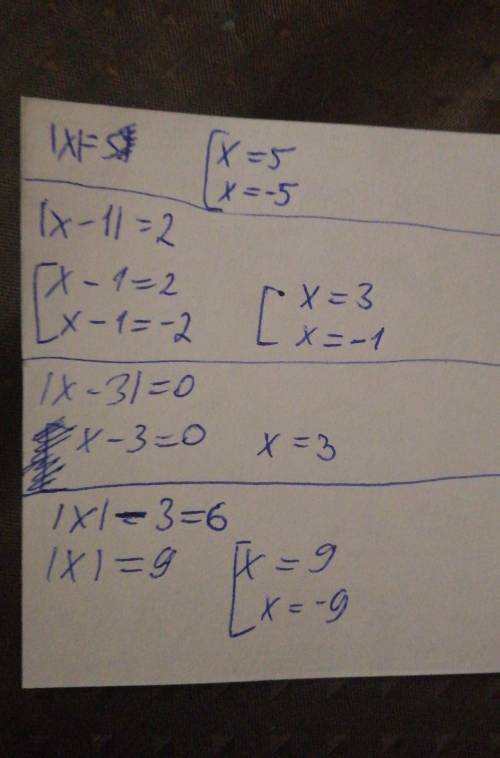 |x|=5 [x=5
x=-5
|x-1|=2
[x-1=2 [x=3
x-1=-2 x=-1
|x-3|=0
x-3=0 x=3
|x|-3=6
|x|=9 [x=9
x=-9